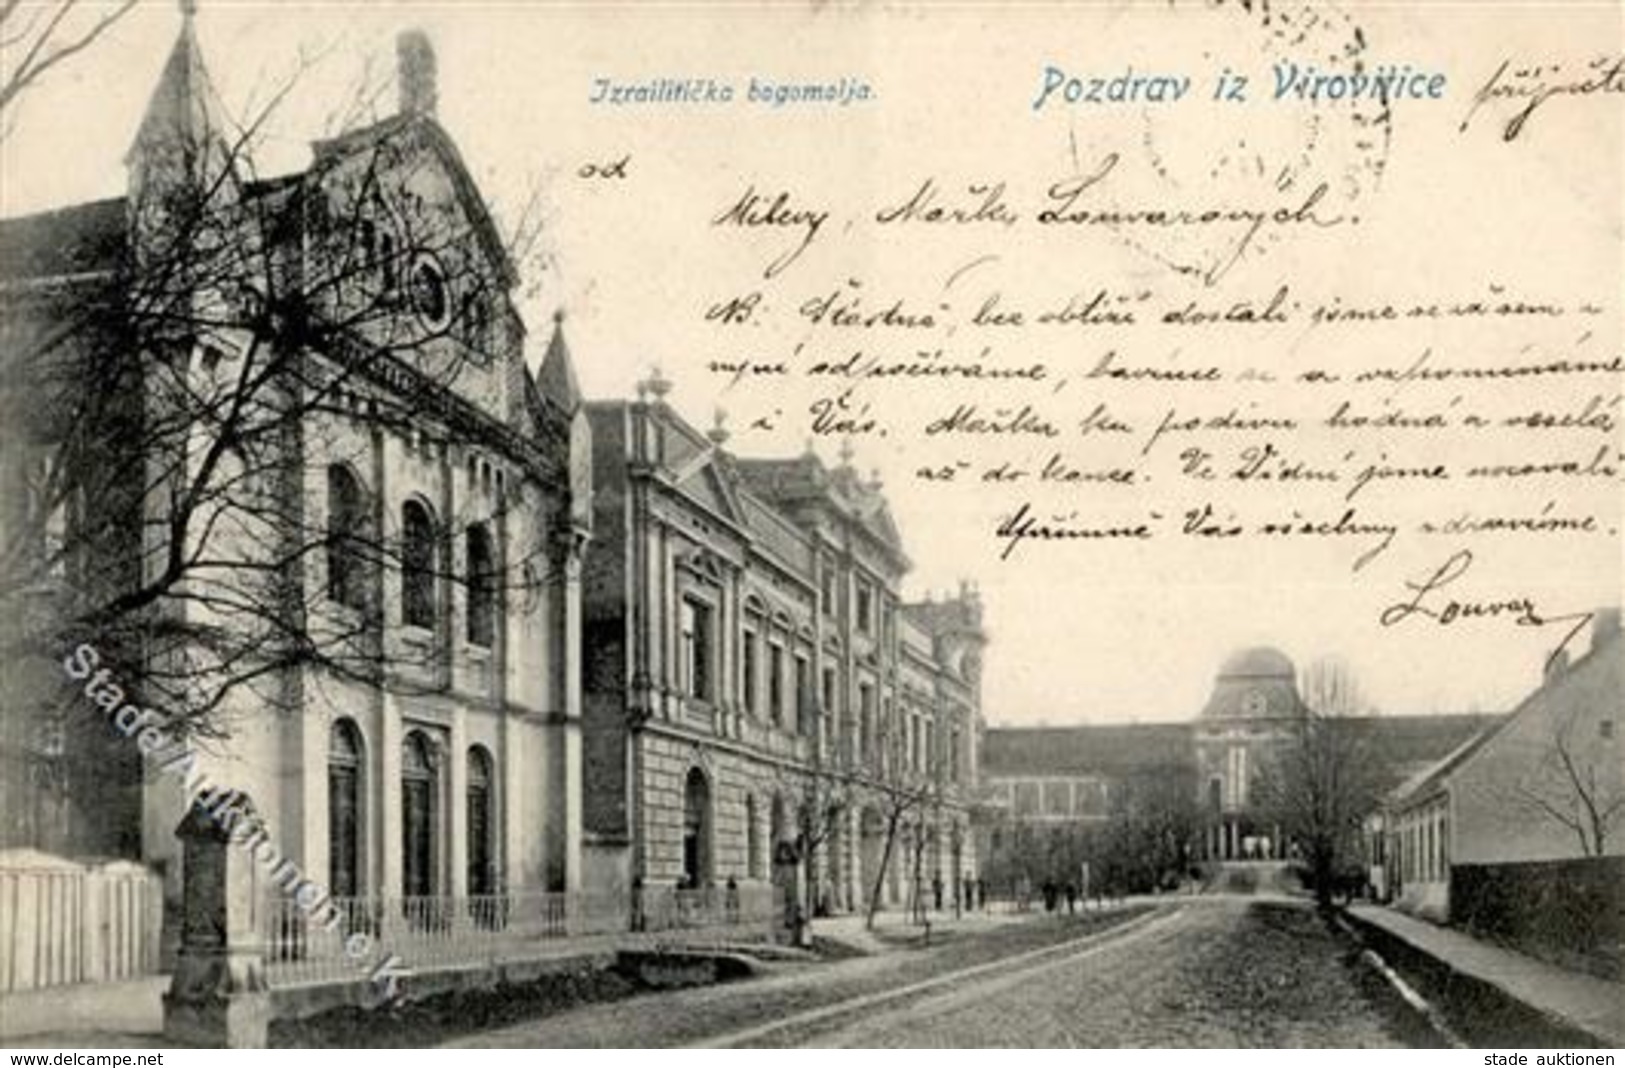 Izrailitička bogomolja.
Pozdrav iz Virovitice
přijměte
od
Milevy, Mařky Louvarových.
NB. Šťastně, bez obtíží dostali jsme se až sem a
nyní odpočíváme, bavíme se a vzpomínáme
i Vás. Mařka ku podivu hodná a veselá
až do konce. Ve Vídni jsme nocovali.
Upřímně Vás všechny zdravíme.
Louvar
Stade/Auktionen o.K.
www.delcampe.net
stade_auktionen